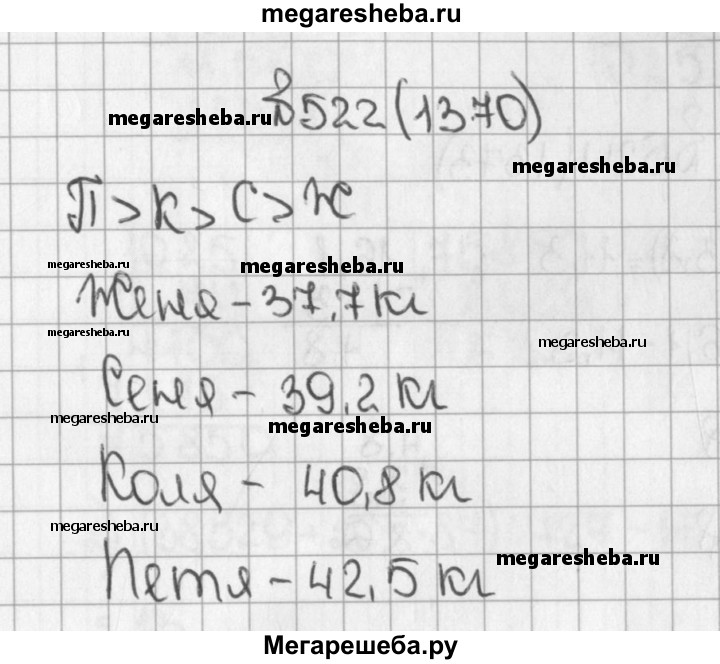 megaresheba.ru
megaresheba.ru №522 (1370)
megaresheba.ru
П > К > С > Ж
megaresheba.ru megaresheba.ru
Женя - 37,7 кг
megaresheba.ru megaresheba.ru
Сеня - 39,2 кг
megaresheba.ru megaresheba.ru
Коля - 40,8 кг
megaresheba.ru
megaresheba.ru
Петя - 42,5 кг
Мегарешеба.ру